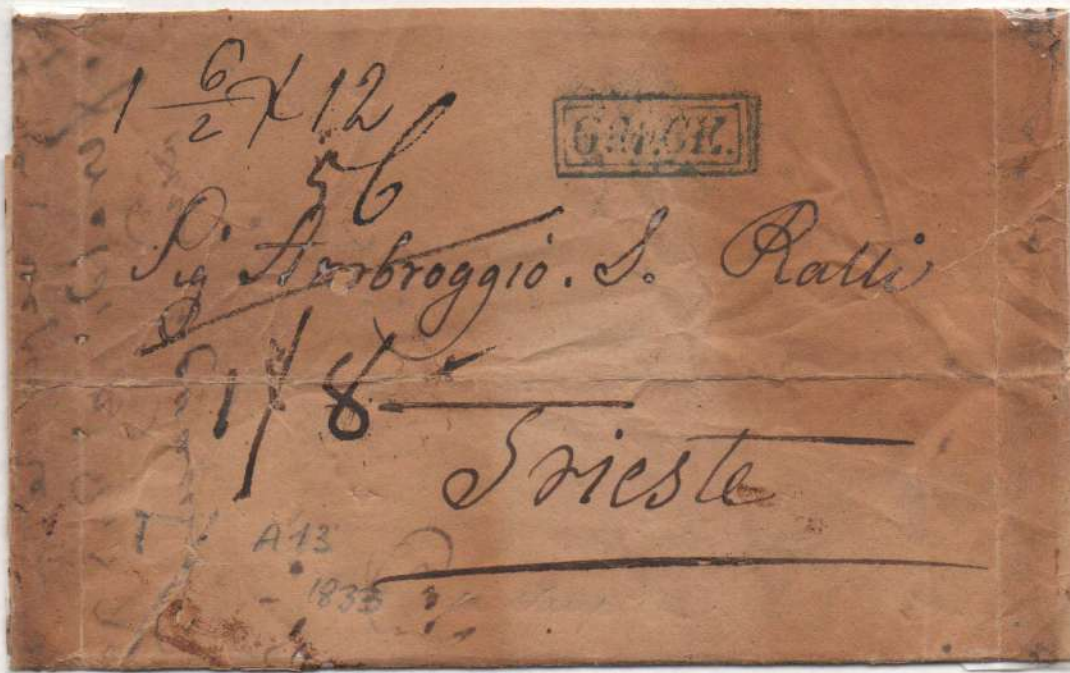 1 6/2 x 12
56
Sig Ambroggio. S. Ralli
1/8
Trieste
A 13
1833